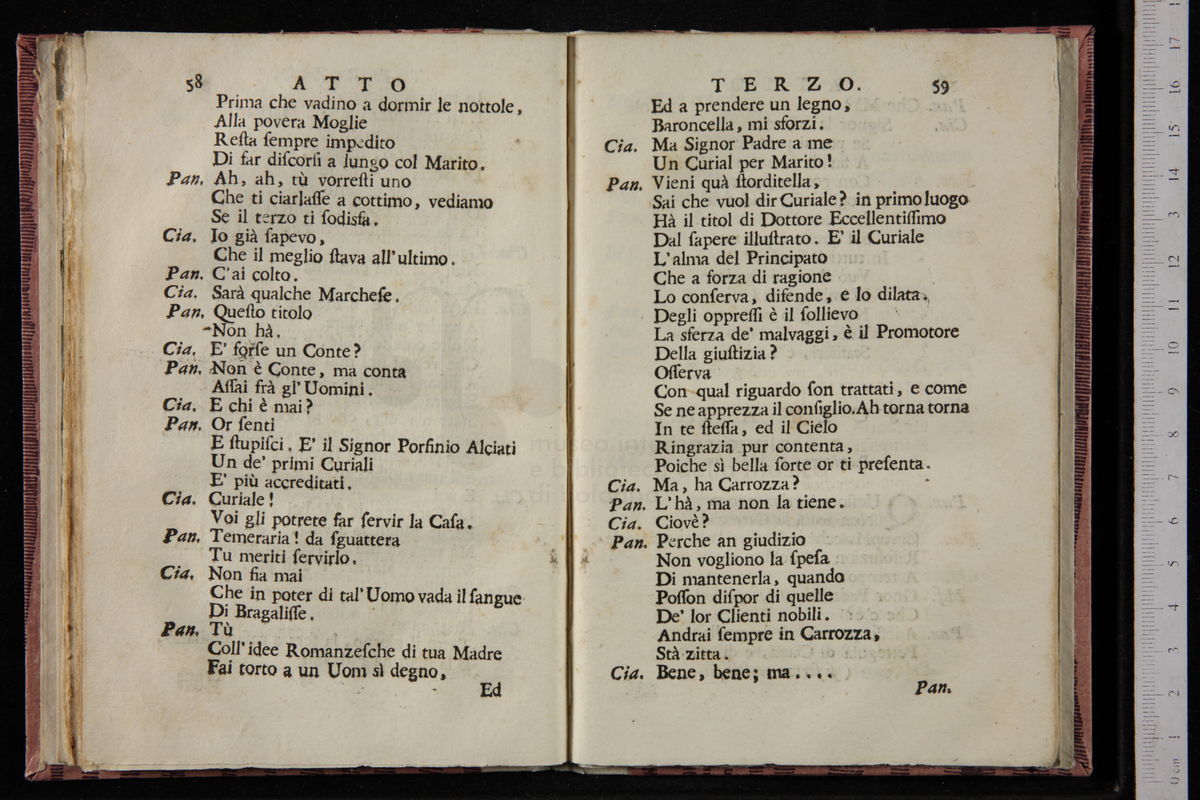 58 ATTO
Prima che vadino a dormir le nottole,
Alla povera Moglie
Reſta ſempre impedito
Di far diſcorſi a lungo col Marito.
Pan. Ah, ah, tù vorreſti uno
Che ti ciarlaſſe a cottimo, vediamo
Se il terzo ti ſodisfa.
Cia. Io già ſapevo,
Che il meglio ſtava all'ultimo.
Pan. C'ai colto.
Cia. Sarà qualche Marcheſe.
Pan. Queſto titolo
Non hà.
Cia. E' forſe un Conte?
Pan. Non è Conte, ma conta
Aſſai frà gl'Uomini.
Cia. E chi è mai?
Pan. Or ſenti
E ſtupiſci. E' il Signor Porfinio Alciati
Un de' primi Curiali
E' più accreditati.
Cia. Curiale!
Voi gli potrete far ſervir la Caſa.
Pan. Temeraria! da ſguattera
Tu meriti ſervirlo.
Cia. Non fia mai
Che in poter di tal'Uomo vada il ſangue
Di Bragaliſſe.
Pan. Tù
Coll'idee Romanzeſche di tua Madre
Fai torto a un Uom sì degno,
Ed
TERZO. 59
Ed a prendere un legno,
Baroncella, mi sforzi.
Cia. Ma Signor Padre a me
Un Curial per Marito!
Pan. Vieni quà ſtorditella,
Sai che vuol dir Curiale? in primo luogo
Hà il titol di Dottore Eccellentiſſimo
Dal ſapere illuſtrato. E' il Curiale
L'alma del Principato
Che a forza di ragione
Lo conſerva, difende, e lo dilata.
Degli oppreſſi è il ſollievo
La sferza de' malvaggi, è il Promotore
Della giuſtizia?
Oſſerva
Con qual riguardo ſon trattati, e come
Se ne apprezza il conſiglio. Ah torna torna
In te ſteſſa, ed il Cielo
Ringrazia pur contenta,
Poiche sì bella ſorte or ti preſenta.
Cia. Ma, ha Carrozza?
Pan. L'hà, ma non la tiene.
Cia. Ciovè?
Pan. Perche an giudizio
Non vogliono la ſpeſa
Di mantenerla, quando
Poſſon diſpor di quelle
De' lor Clienti nobili.
Andrai ſempre in Carrozza,
Stà zitta.
Cia. Bene, bene; ma....
Pan.